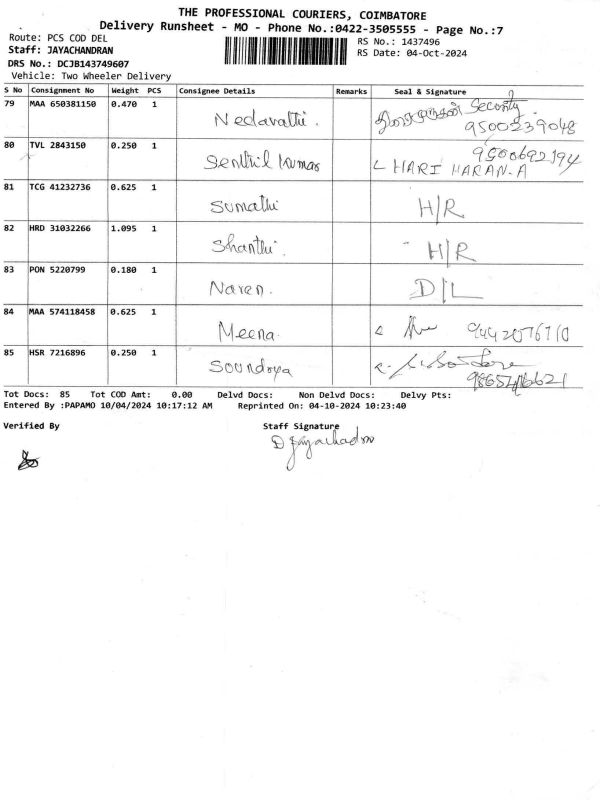 THE PROFESSIONAL COURIERS, COIMBATORE
Delivery Runsheet - MO - Phone No.:0422-3505555 - Page No.:7
Route: PCS COD DEL
RS No.: 1437496
Staff: JAYACHANDRAN
RS Date: 04-Oct-2024
DRS No.: DCJB143749607
Vehicle: Two Wheeler Delivery
S No Consignment No Weight PCS Consignee Details Remarks Seal & Signature
79 MAA 650381150 0.470 1 Nedavathi. Security
9500239048
80 TVL 2843150 0.250 1 Senthil kumar 9500692194
HARI HARAN-A
81 TCG 41232736 0.625 1 Sumathi H/R
82 HRD 31032266 1.095 1 Shanthi. H/R
83 PON 5220799 0.180 1 Naren. D/L
84 MAA 574118458 0.625 1 Meena. 9442076710
85 HSR 7216896 0.250 1 Soundrya
Tot Docs: 85 Tot COD Amt: 0.00 Delvd Docs: Non Delvd Docs: Delvy Pts:
Entered By :PAPAMO 10/04/2024 10:17:12 AM Reprinted On: 04-10-2024 10:23:40
Verified By Staff Signature